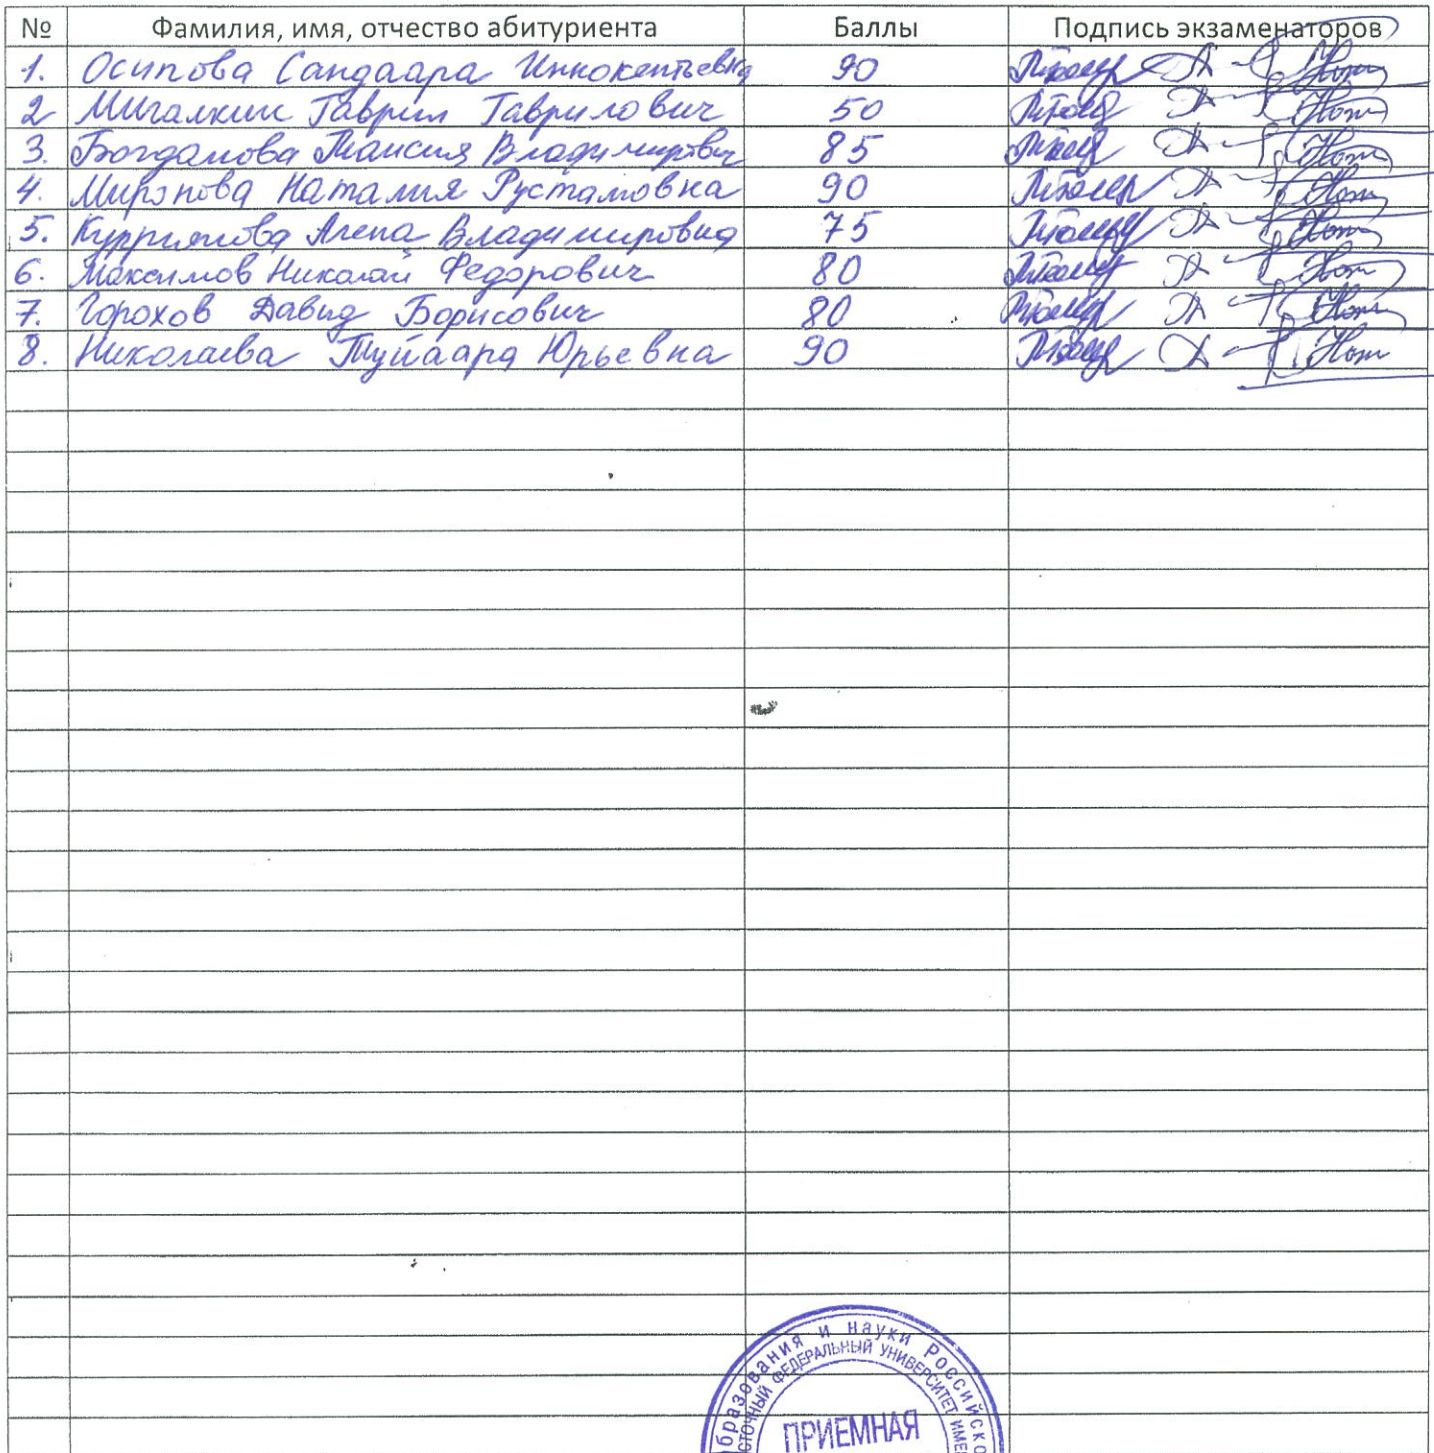 № Фамилия, имя, отчество абитуриента Баллы Подпись экзаменаторов
1. Осипова Сандаара Иннокентьевна 90
2 Мигалкин Гаврил Гаврилович 50
3. Богданова Таисия Владимировн 85
4. Миронова Наталия Рустамовна 90
5. Куприянова Алена Владимировна 75
6. Максимов Николай Федорович 80
7. Горохов Давид Борисович 80
8. Николаева Туйаара Юрьевна 90
образования и науки Российско
сточный федеральный университет име
ПРИЕМНАЯ